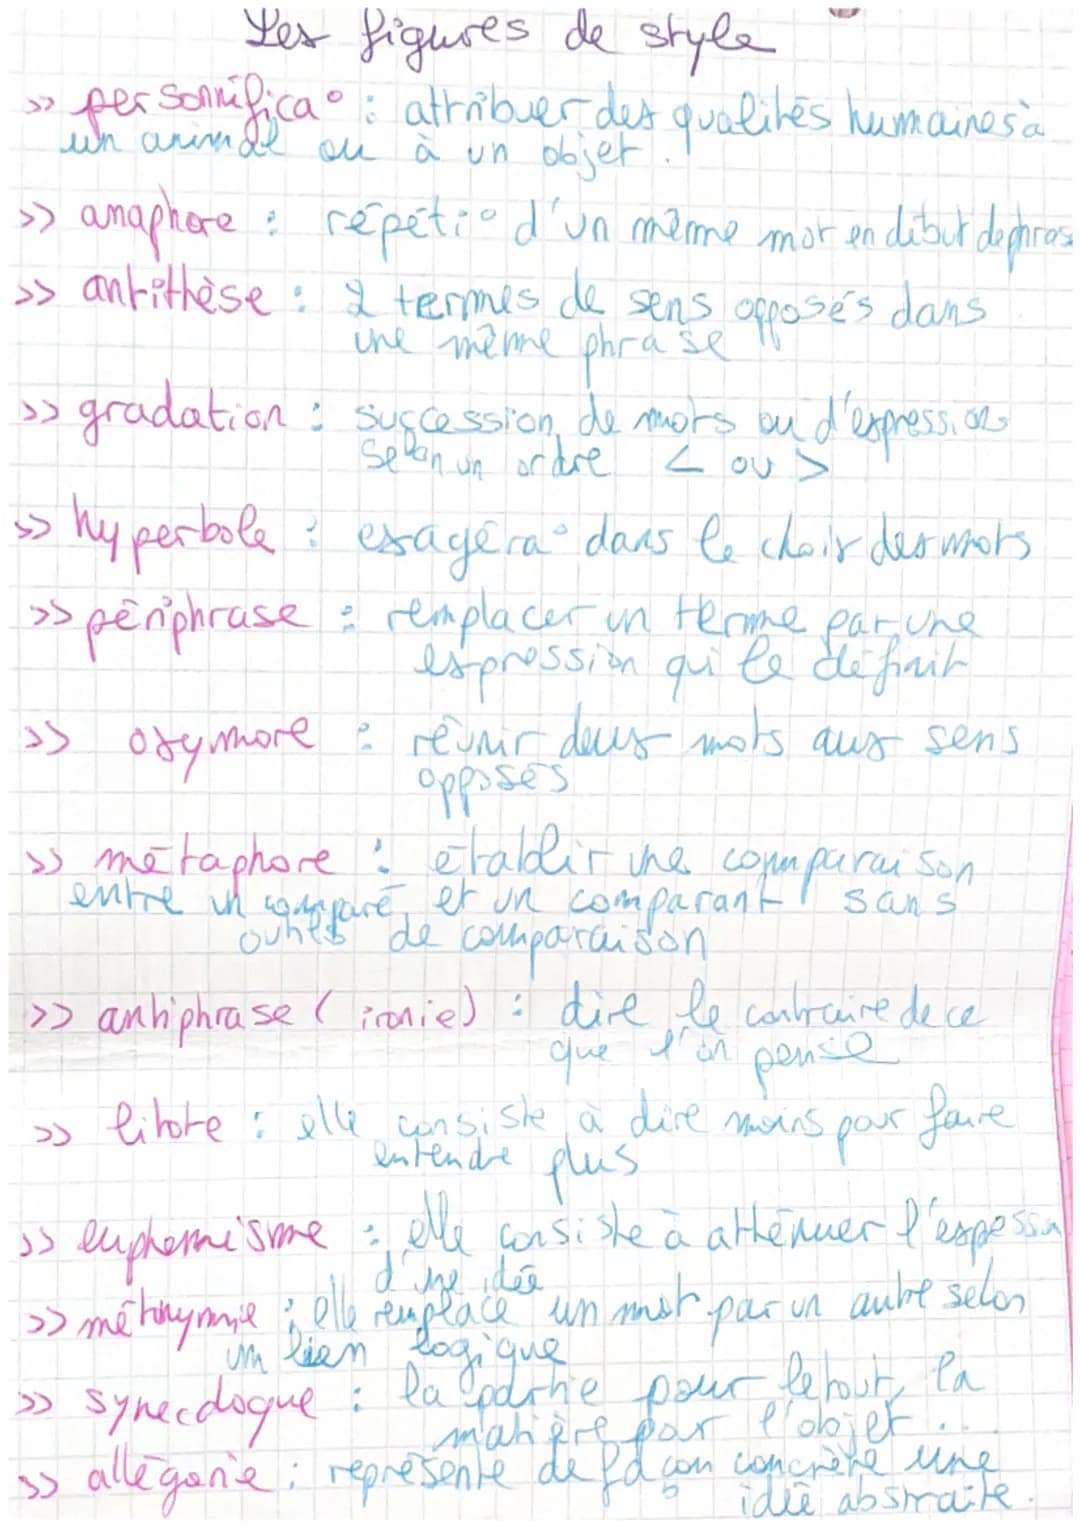 Les figures de style
>> personnifica° : attribuer des qualités humaines à
un animal ou à un objet.
>> anaphore : répéti° d'un même mot en début de phras
>> antithèse : 2 termes de sens opposés dans
une même phrase
>> gradation : succession de mots ou d'expressions
selon un ordre < ou >
>> hyperbole : exagéra° dans le choix des mots
>> périphrase : remplacer un terme par une
expression qui le définit
>> oxymore : réunir deux mots aux sens
opposés
>> métaphore : établir une comparaison
entre un comparé et un comparant sans
outils de comparaison
>> antiphrase (ironie) : dire le contraire de ce
que l'on pense
>> litote : elle consiste à dire moins pour faire
entendre plus
>> euphemisme : elle consiste à atténuer l'expession
d'une idée
>> métonymie : elle remplace un mot par un autre selon
un lien logique
>> synecdoque : la partie pour le tout, la
matière pour l'objet...
>> allégorie : représente de façon concrète une
idée abstraite.